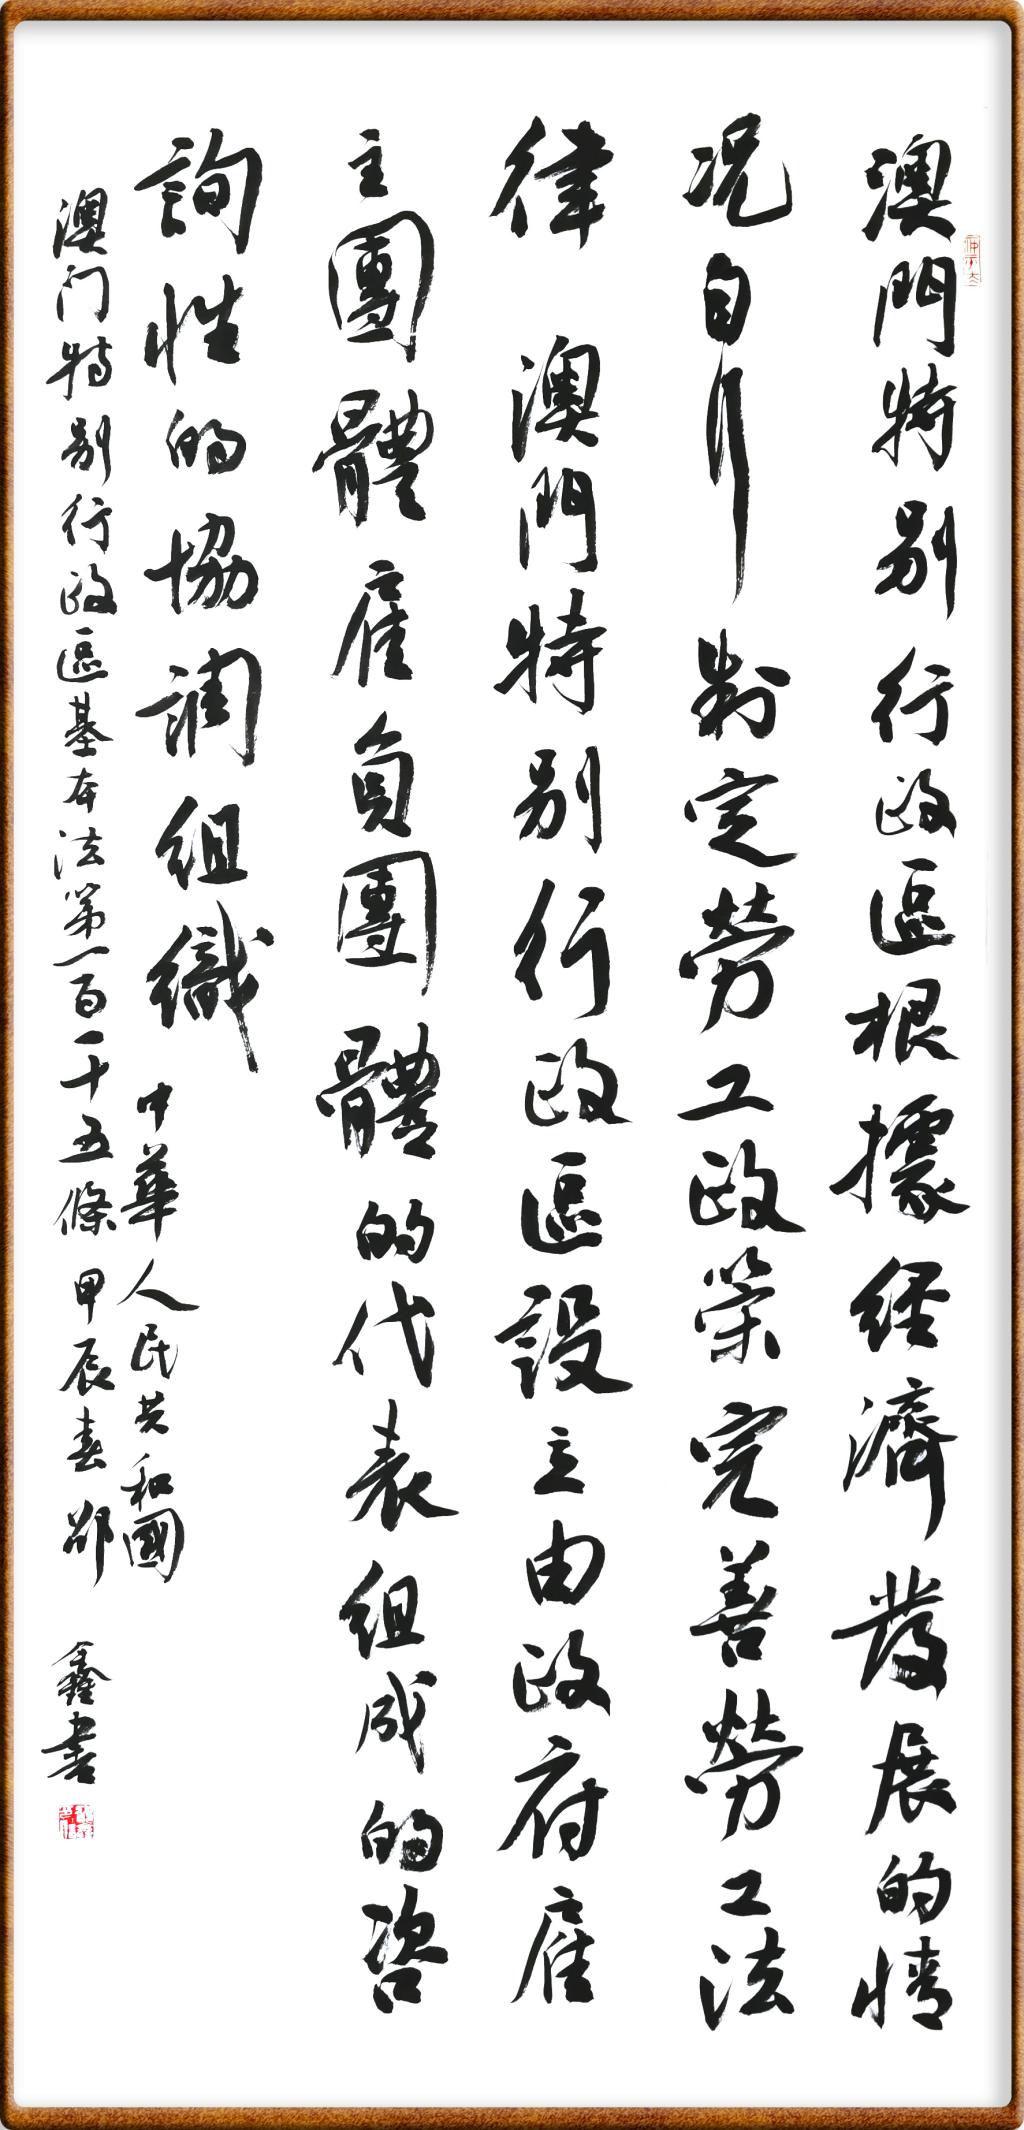 澳門特别行政區根據經濟發展的情
况自行制定勞工政策完善勞工法
律 澳門特别行政區設立由政府雇
主團體雇員團體的代表組成的咨
詢性的協調組織 中華人民共和國
澳门特别行政區基本法第一百一十五條 甲辰春 邵鑫書